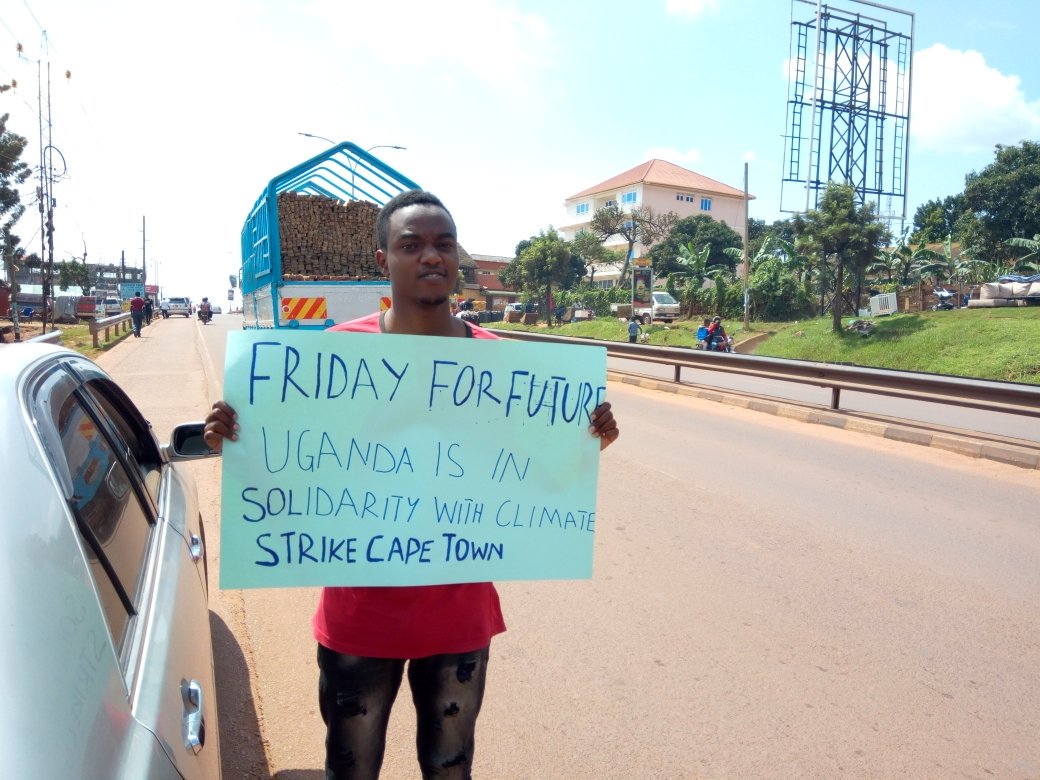 FRIDAY FOR FUTURE
UGANDA IS IN
SOLIDARITY WITH CLIMATE
STRIKE CAPE TOWN